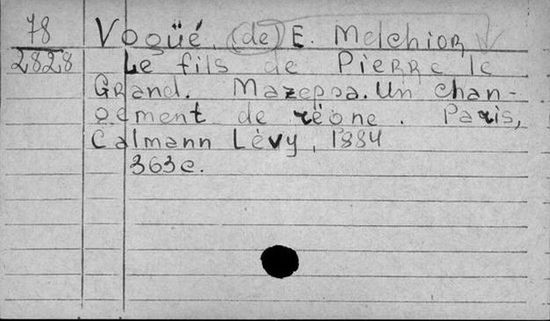 78 Vogüé, (de) E. Melchior
2828 Le fils de Pierre le
Grand. Mazeppa. Un chan-
gement de règne. Paris,
Calmann Lévy, 1884
363 c.